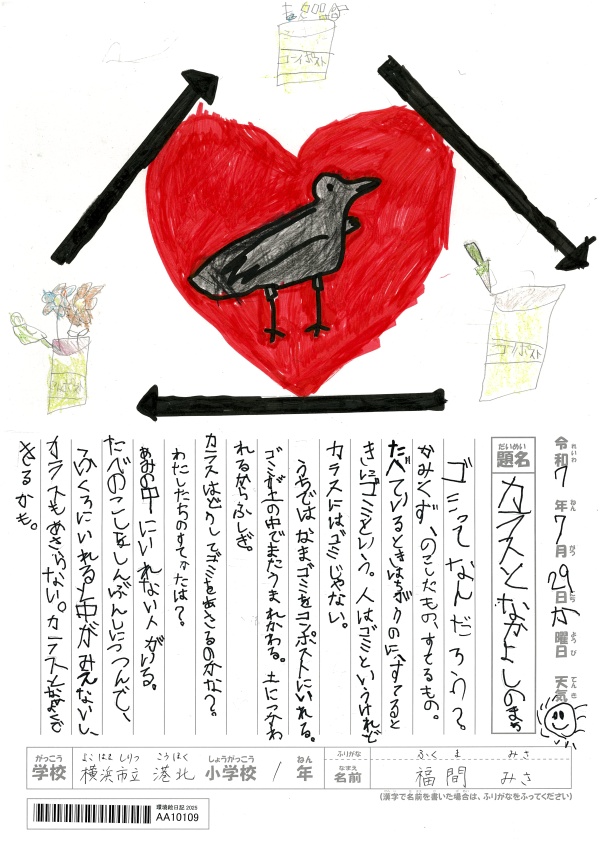 コンポスト
コンポスト
コンポスト
令和7年7月29日か曜日 天気
れいわ ねん がつ にち ようび てんき
だいめい
題名 カラスとなかよしのまち
ゴミってなんだろう?
かみくず、のこしたもの、すてるもの。
たべているときはちがうのに、すてると
きにゴミという。人はゴミというけれど
カラスにはゴミじゃない。
うちではなまゴミをコンポストにいれる。
ゴミが土の中でまたうまれかわる。土にかわ
れるからふしぎ。
カラスはどうしてゴミをあさるのかな?
わたしたちのすてかたは?
あみの中にいれない人がいる。
たべのこしをしんぶんしにつつんで、
ふくろにいれると中がみえないし、
カラスもあさらない。カラスとなかよくで
きるかも。
がっこう よこはましりつ こうほく しょうがっこう ねん
学校 横浜市立 港北 小学校 1年
ふりがな ふくま みさ
なまえ
名前 福間 みさ
(漢字で名前を書いた場合は、ふりがなをふってください)
環境絵日記 2025
AA10109